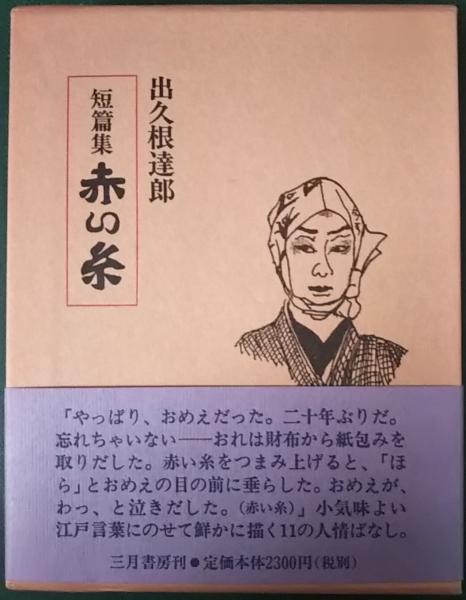 出久根達郎
短篇集 赤い糸
「やっぱり、おめえだった。二十年ぶりだ。
忘れちゃいない——おれは財布から紙包みを
取りだした。赤い糸をつまみ上げると、「ほ
ら」とおめえの目の前に垂らした。おめえが、
わっ、と泣きだした。(赤い糸)」小気味よい
江戸言葉にのせて鮮かに描く11の人情ばなし。
三月書房刊●定価本体2300円(税別)